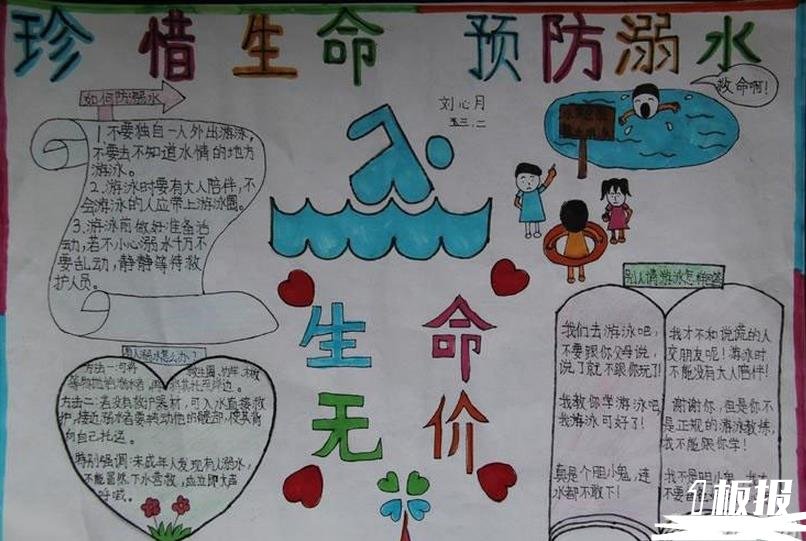 珍惜生命 预防溺水
如何防溺水
1.不要独自一人外出游泳,
不要去不知道水情的地方
游泳。
2.游泳时要有大人陪伴,不
会游泳的人应带上游泳圈。
3.游泳前做好准备活
动,若不小心溺水千万不
要乱动,静静等待救
护人员。
刘心月
五三.二
救命啊!
生命
无价
别人溺水怎么办?
方法一:可将
方法二:若没有救护器材,可入水直接救
护,接近溺水者要转动他的髋部,使其背
向自己拖运。
特别强调:未成年人发现有人溺水,
不能冒然下水营救,应立即大声
呼喊。
别人请游泳怎样回答
我们去游泳吧,
不要跟你父母说,
说了就不跟你玩了!
我教你学游泳吧,
我游泳可好了!
真是个胆小鬼,连
水都不敢下!
我才不和说谎的人
交朋友呢!游泳时
不能没有大人陪伴!
谢谢你,但是你不
是正规的游泳教练,
我不能跟你学!
我不是胆小鬼,我才
不要
板报